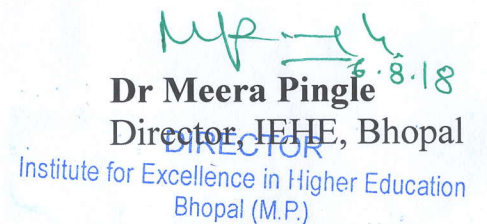 6.8.18
Dr Meera Pingle
Director, IEHE, Bhopal
DIRECTOR
Institute for Excellence in Higher Education
Bhopal (M.P.)